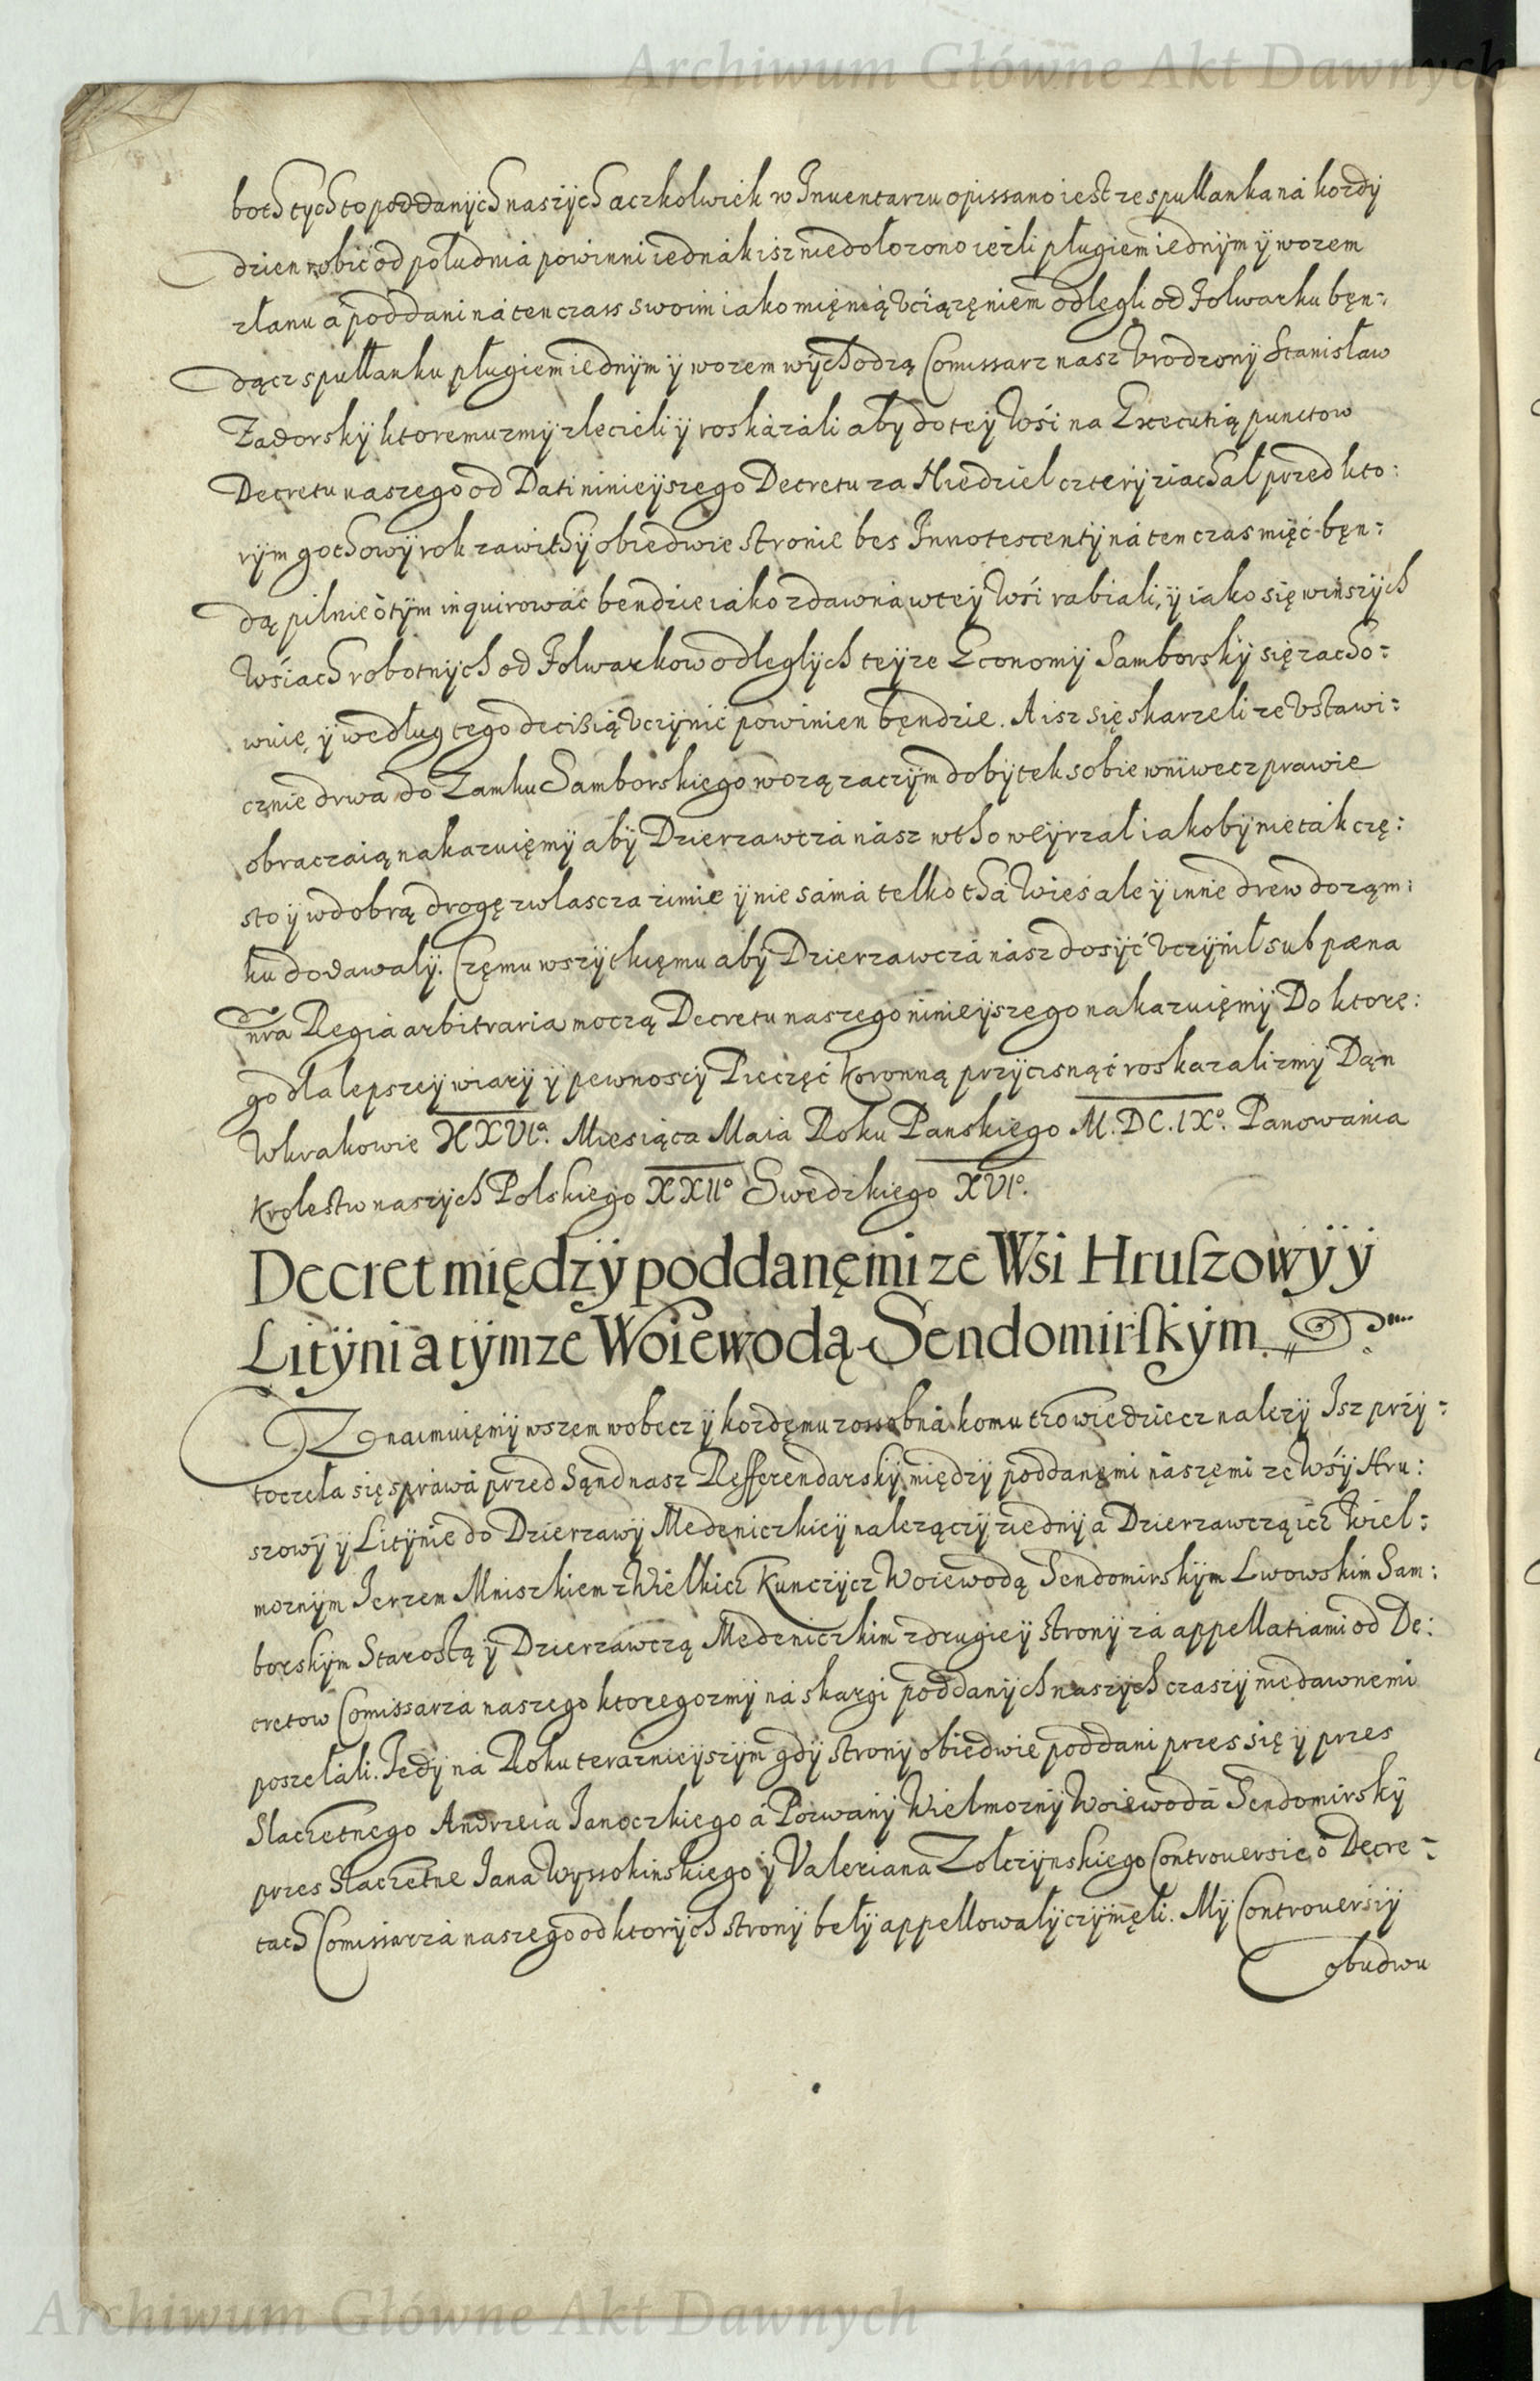 Archiwum Główne Akt Dawnych
both tych to poddanÿch naszÿch aczkolwiek w Inuentarzu opissano iest ze spułłanka ná kozdÿ
dzien robić od południa powinni iednák isz niedołozono ieżli pługiem iednÿm ÿ wozem
złanu a poddani ná ten czass swoim iako mięnią vciązęniem odlegli od Folwarku bęn:
dącz spułłanku pługiem iednÿm ÿ wozem wÿchodzą Comissarz nasz Vrodzonÿ Stanisław
Zadorskÿ ktoremuzmÿ zlecieli ÿ roskázáli abÿ do teÿ Wśi na Executią punctow
Decretu naszego od Dati ninieÿszego Decretu za Niedziel czterÿ ziachał przed kto:
rÿm gothowÿ rok zawithÿ obiedwie stronie bes Innotescentÿ ná ten czas mięć bęn:
dą pilnie o tÿm inquirować bendzie iáko zdawná w teÿ Wśi rabiali, ÿ iako się winszÿch
Wśiach robotnÿch od Folwarkow odległÿch teÿze Economÿ Samborskÿ się zacho:
wuie, ÿ według tego decisią vczÿnić powinien bęndzie. A isz się skarzeli ze vstawi:
cznie drwa do Zamku Samborskiego wozą zaczÿm dobÿtek sobie wniwecz prawie
obraczaią nakazuięmÿ abÿ Dzierzawczá nász w tho weÿrzał iakobÿ nie ták czę:
sto ÿ w dobrą drogę zwlascza zimie ÿ nie sámá telko thá Wieś ale ÿ inne drew do ząm:
ku dodawałÿ. Częmu wszÿtkięmu abÿ Dzierzawczá nász dosÿć vczÿnił sub pæna
nra Regia arbitraria moczą Decretu naszego ninieÿszego nakazuięmÿ Do ktorę:
go dla lepszeÿ wiarÿ ÿ pewnoscÿ Pieczęć Koronną przÿcisnąć roskazalizmÿ Dąn
W krakowie XXVIº. Miesiąca Maia Roku Panskiego M.DC.IXº. Panowania
Krolestw naszÿch Polskiego XXIIº Swedzkiego XVIº.
Decret międzÿ poddanęmi ze Wsi Hruszowÿ ÿ
Litÿni a tÿmze Woiewodą Sendomirskÿm
Znaimuięmÿ wszem wobecz ÿ kozdęmu zossobná komu tho wiedziecz nalezÿ Isz przÿ:
toczeła się spráwá przed Sąnd nasz Refferendarskÿ międzÿ poddanęmi nászęmi ze Wśÿ Hru:
szowÿ ÿ Litÿnie do Dzierzawÿ Medeniczkieÿ nalezączÿ ziednÿ a Dzierzawczą ich Wiel:
moznÿm Ierzem Mniszkiem z Wielkich Kunczÿcz Woiewodą Sendomirskÿm Lwowskim Sam:
borskÿm Starostą ÿ Dzierzawczą Medeniczkim z drugieÿ stronÿ zá appellatiami od De:
cretow Comissarza naszego ktoregozmÿ ná skargi poddanÿch naszÿch czaszÿ niedawnemi
poszełáli. Tedÿ ná Roku teraznieÿszÿm gdÿ stronÿ obiedwie poddani przes się ÿ przes
Slachetnego Andrzeia Ianoczkiego á Pozwanÿ Wielmoznÿ Woiewodá Sendomirskÿ
przes Slachetne Iana Wyssokinskiego ÿ Valeriana Zołczÿnskiego Controuersie o Decre:
tach Comissarzá naszego od ktorÿch stronÿ bełÿ appellowałÿ czÿnięłi. Mÿ Controuersiÿ
obudwu
Archiwum Główne Akt Dawnych